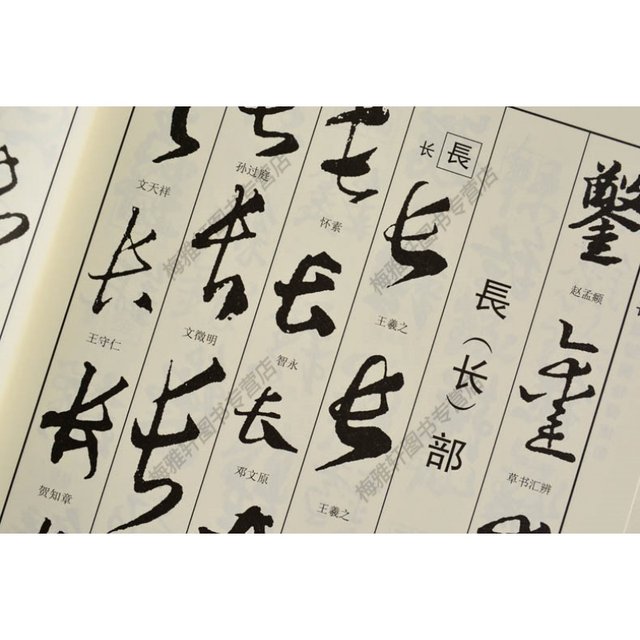 鑿
赵孟頫
鑿
草书汇辨
長（长）部
長
长
长
王羲之
长
王羲之
长
怀素
长
智永
长
邓文原
长
孙过庭
长
文徵明
长
长
文天祥
长
王守仁
长
贺知章
梅雅轩图书专营店
梅雅轩图书专营店
梅雅轩图书专营店
梅雅轩图书专营店